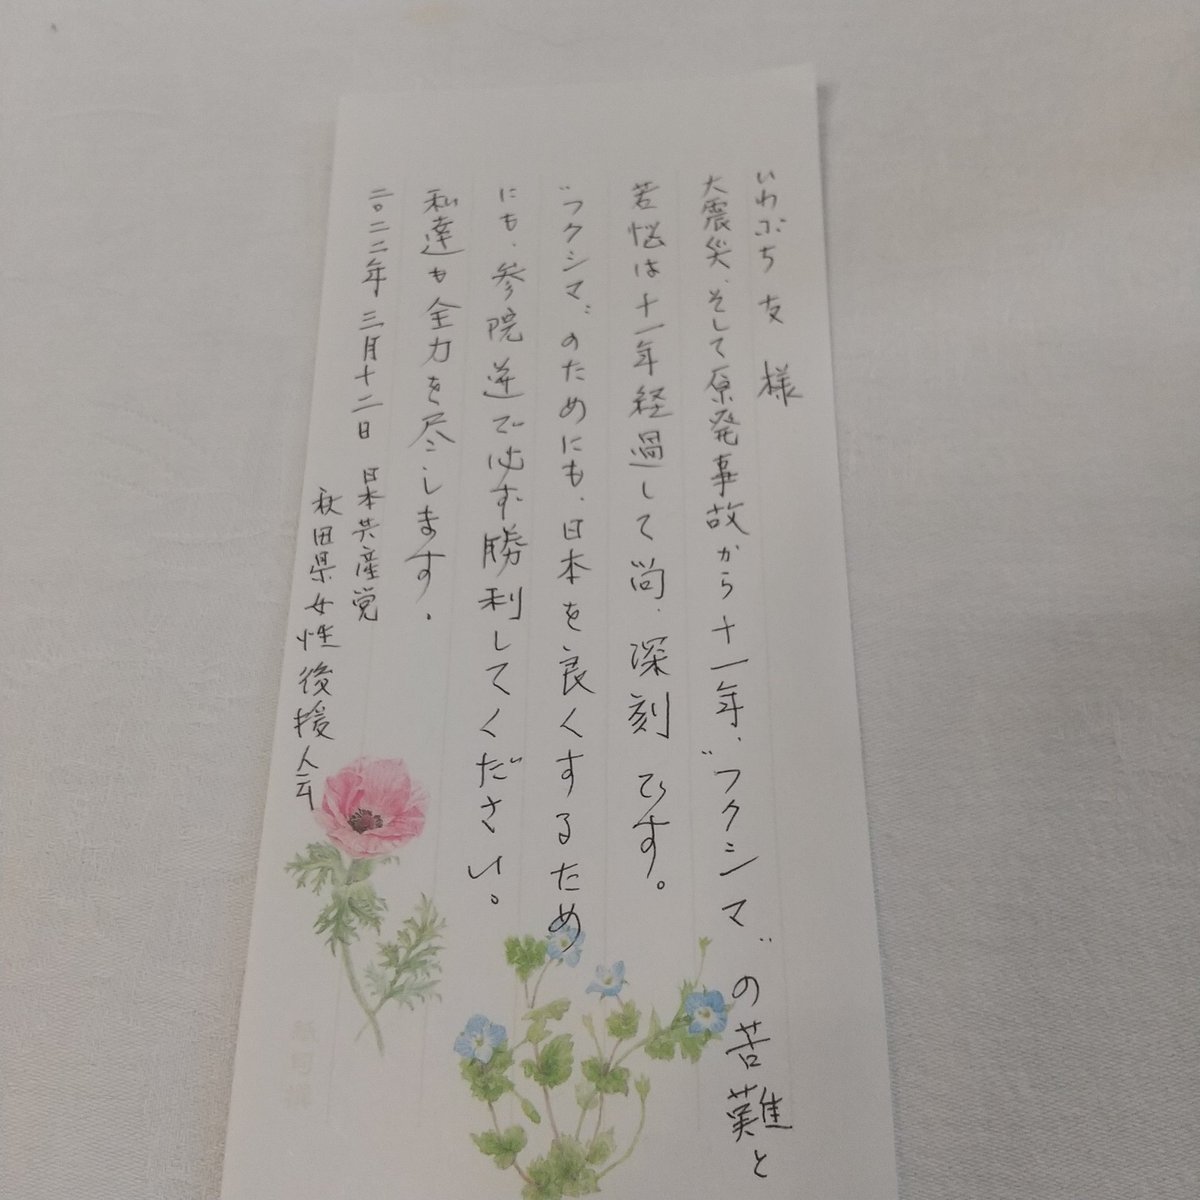 いわぶち 友 様
大震災、そして原発事故から十一年、"フクシマ"の苦難と
苦悩は十一年経過して尚、深刻です。
"フクシマ"のためにも、日本を良くするため
にも、参院選で必ず勝利してください。
私達も全力を尽します。
二〇二二年三月十二日 日本共産党
秋田県女性後援会